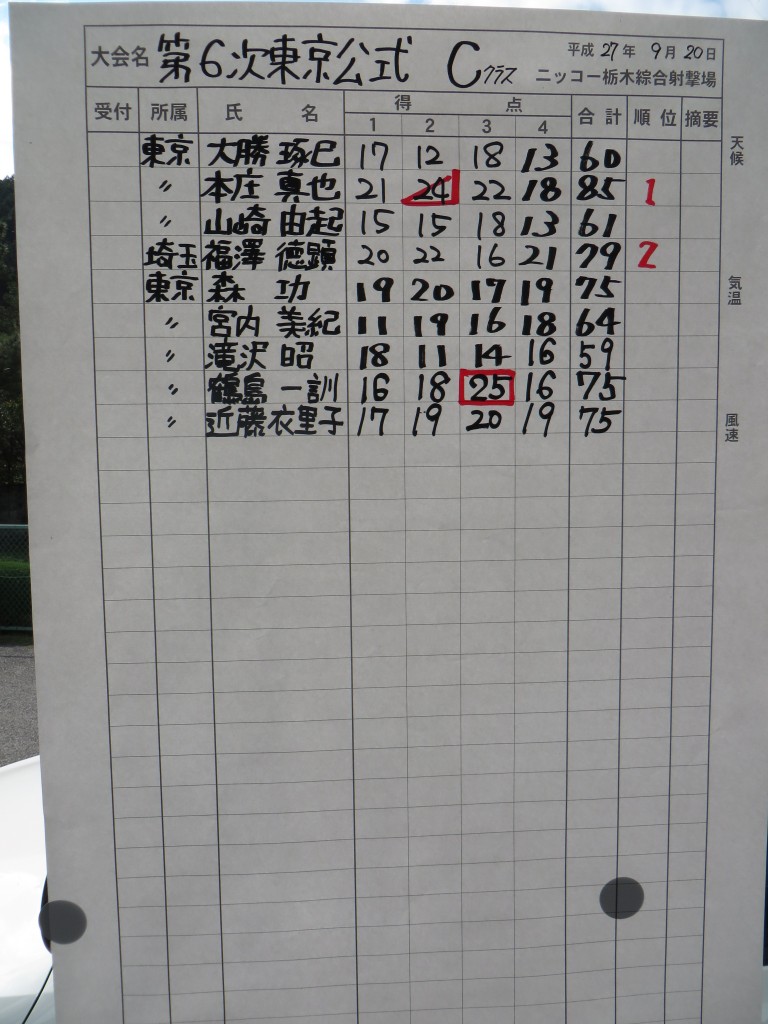 大会名 第6次東京公式 Cクラス 平成27年 9月20日
ニッコー栃木綜合射撃場
受付 所属 氏名 得点 合計 順位 摘要
1 2 3 4
東京 大勝 琢巳 17 12 18 13 60
〃 本庄 真也 21 24 22 18 85 1
〃 山崎 由起 15 15 18 13 61
埼玉 福澤 徳顕 20 22 16 21 79 2
東京 森 功 19 20 17 19 75
〃 宮内 美紀 11 19 16 18 64
〃 滝沢 昭 18 11 14 16 59
〃 鶴島 一訓 16 18 25 16 75
〃 近藤 衣里子 17 19 20 19 75
天候
気温
風速